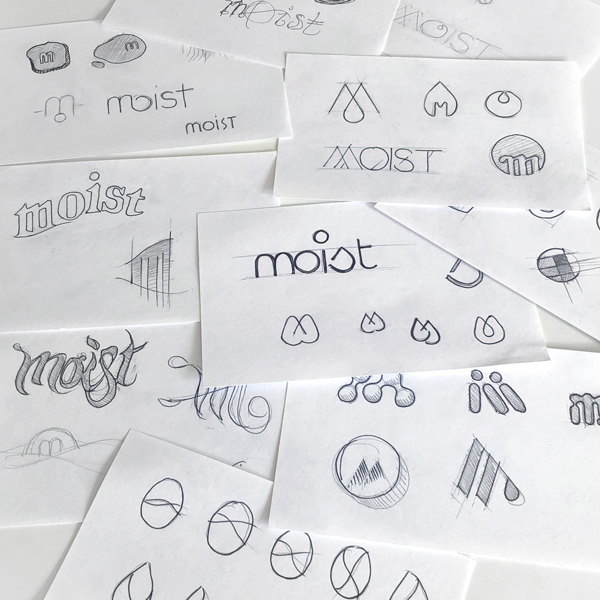 moist
MOIST
m
m
moist
moist
m
MOIST
m
moist
moist
moist
m
m